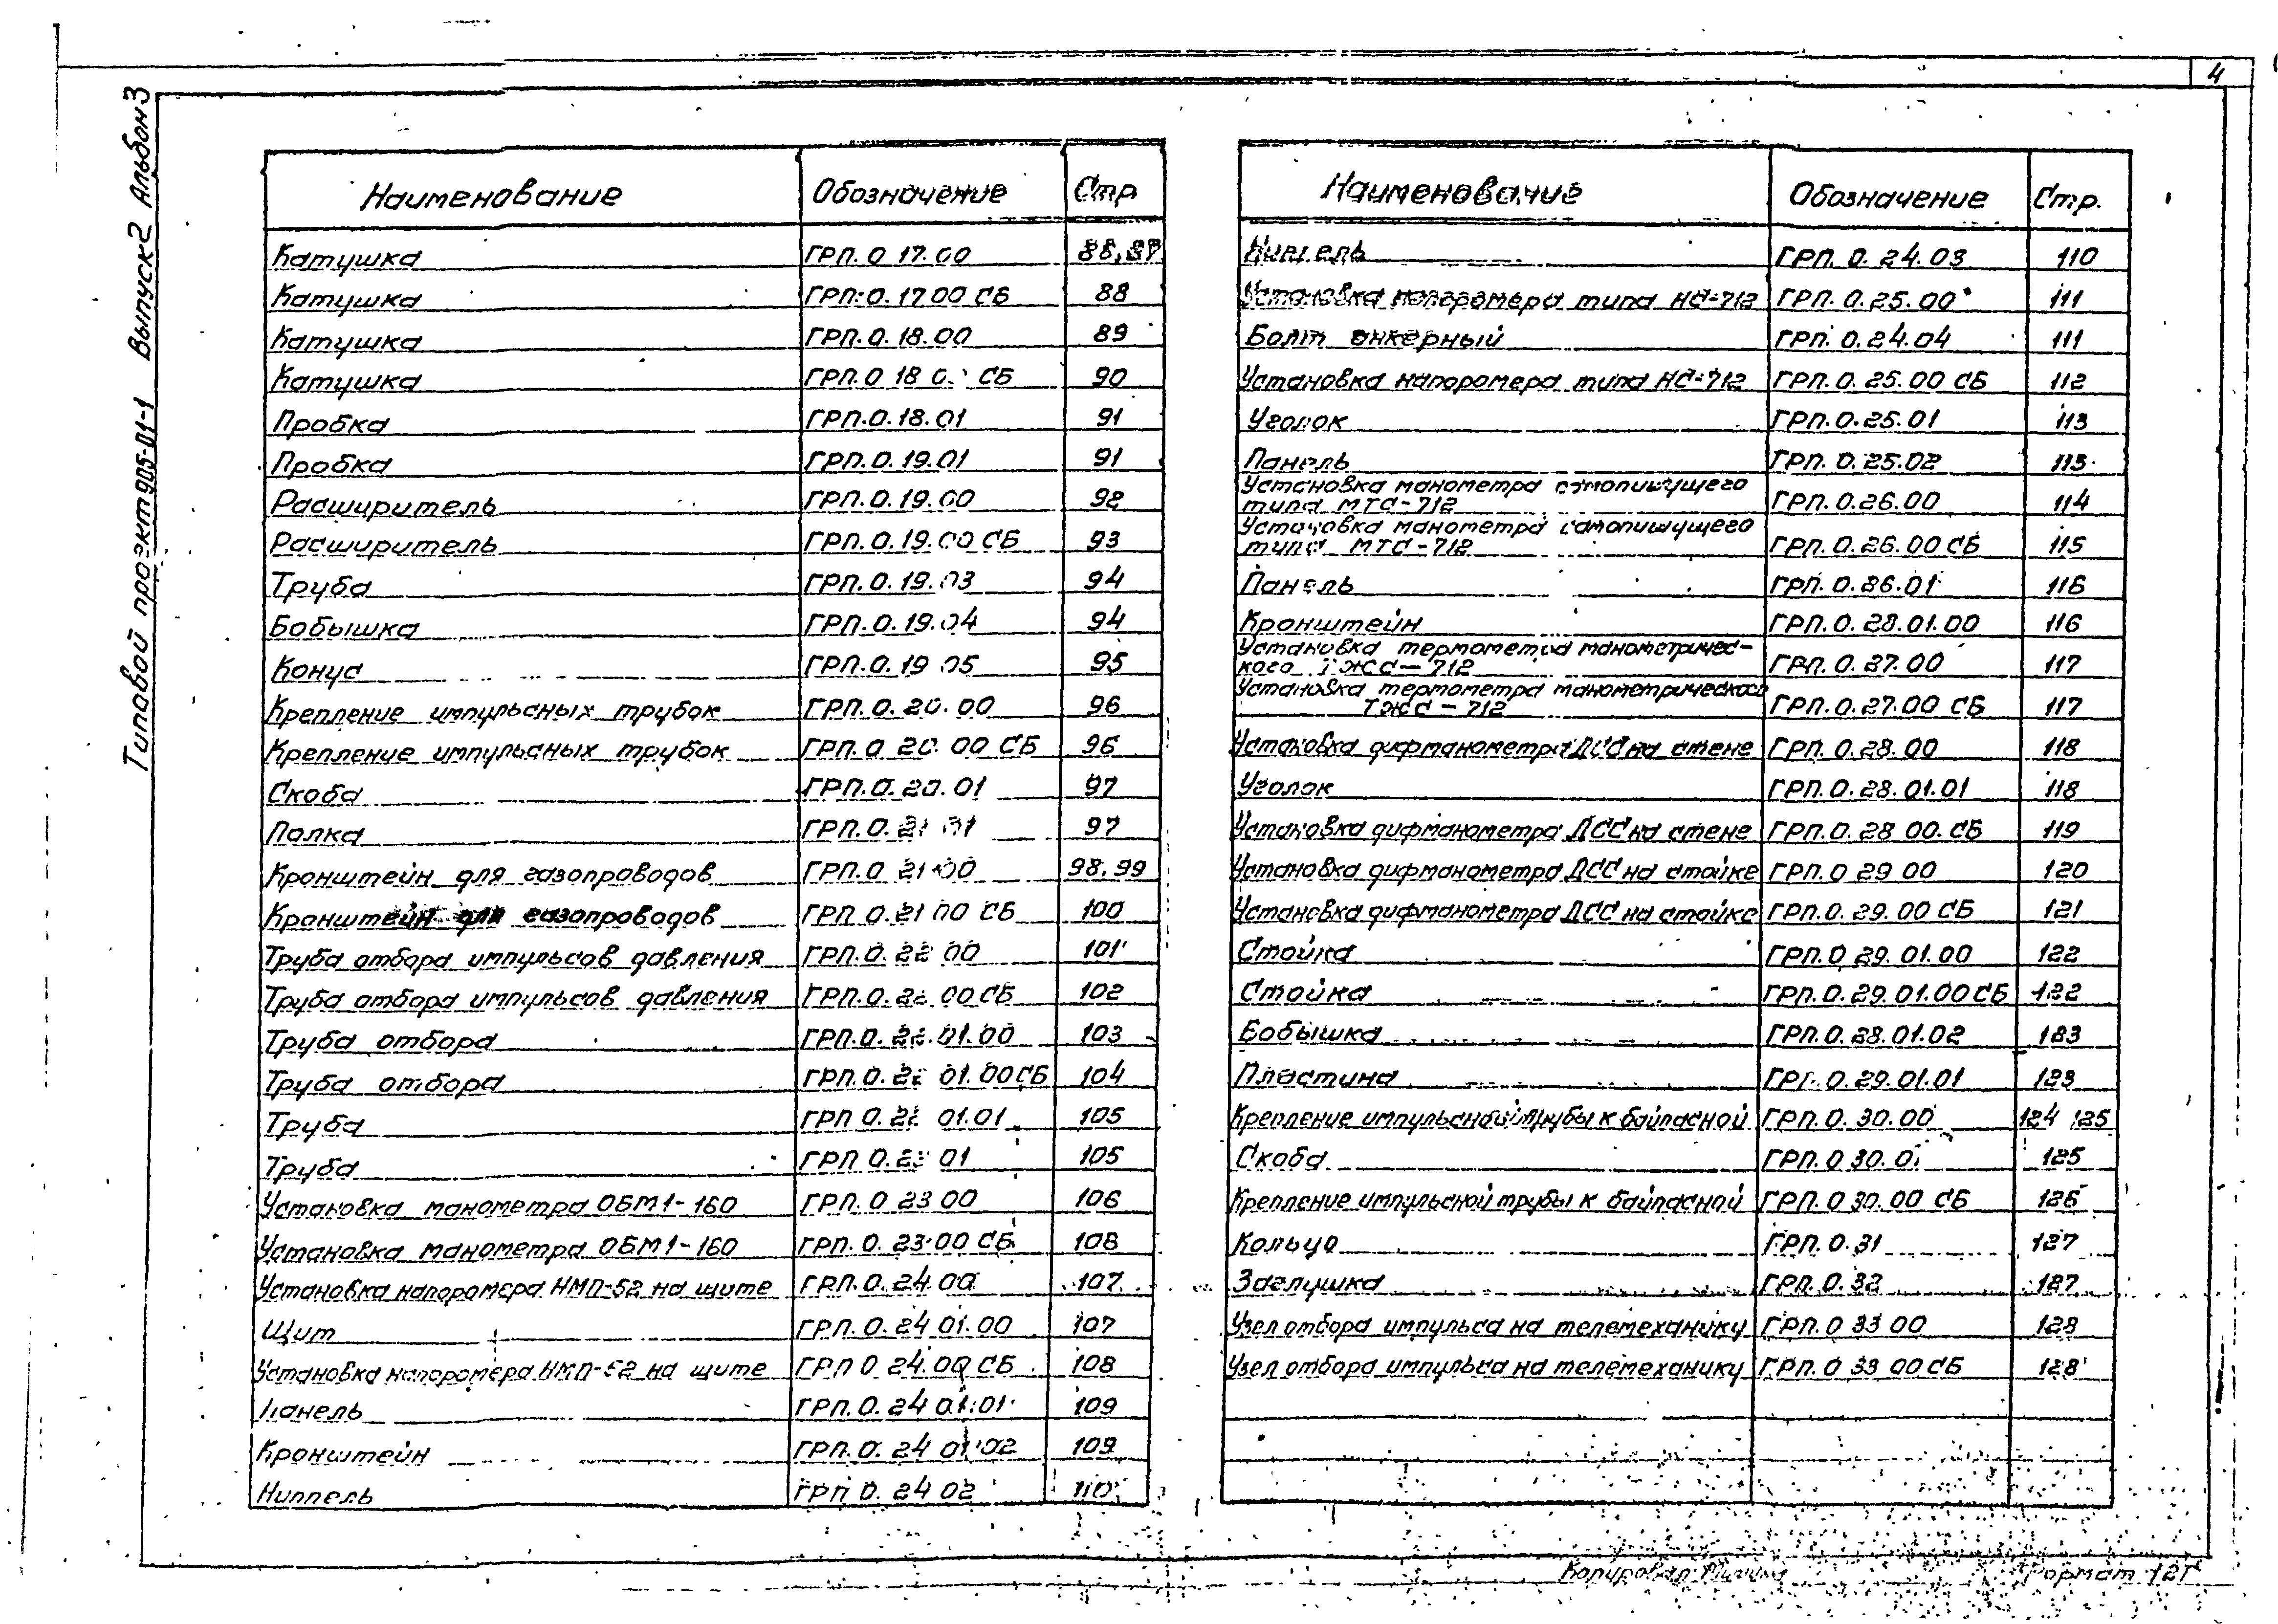 4
Типовой проект 905-01-1 Выпуск 2 Альбом 3
Наименование Обозначение Стр
Катушка ГРП.О 17.00
Катушка ГРП.О.17 00 СБ 88
Катушка ГРП.О.18.00 89
Катушка ГРП.О 18 СБ 90
Пробка ГРП.О.18.01 91
Пробка ГРП.О.19.01 91
Расширитель ГРП.О.19.00 92
Расширитель ГРП.О.19.00 СБ 93
Труба ГРП.О.19.03 94
Бобышка ГРП.О.19.04 94
Конус ГРП.О.19 05 95
Крепление импульсных трубок ГРП.О.20.00 96
Крепление импульсных трубок ГРП.О 20.00 СБ 96
Скоба ГРП.О.20.01 97
Полка ГРП.О.21 01 97
Кронштейн для газопроводов ГРП.О 21.00 98,99
Кронштейн для газопроводов ГРП О.21 00 СБ 100
Труба отбора импульсов давления ГРП.О.22 00 101
Труба отбора импульсов давления ГРП.О.22 00 СБ 102
Труба отбора ГРП.О.22.01.00 103
Труба отбора ГРП О.22 01.00 СБ 104
Труба ГРП О.22 01.01 105
Труба ГРП О.22 01 105
Установка манометра ОБМ1-160 ГРП О 23 00 106
Установка манометра ОБМ1-160 ГРП.О.23.00 СБ 106
Установка напоромера НМП-52 на щите ГРП.О.24.00 107
Щит ГРП.О.24 01.00 107
Установка напоромера НМП-52 на щите ГРП О 24.00 СБ 108
Панель ГРП.О.24 01.01 109
Кронштейн ГРП.О.24 01.02 109
Ниппель ГРП О.24 02 110
Наименование Обозначение Стр.
Ниппель ГРП.О.24.03 110
Установка напоромера типа НС-712 ГРП.О.25.00 111
Болт анкерный ГРП.О.24.04 111
Установка напоромера типа НС-712 ГРП.О.25.00 СБ 112
Уголок ГРП.О.25.01 113
Панель ГРП.О.25.02 113
Установка манометра самопишущего
типа МТС-712 ГРП.О.26.00 114
Установка манометра самопишущего
типа МТС-712 ГРП.О.26.00 СБ 115
Панель ГРП.О.26.01 116
Кронштейн ГРП.О.28.01.00 116
Установка термометра манометричес-
кого ТЖС-712 ГРП.О.27.00 117
Установка термометра манометрического
ТЖС-712 ГРП.О.27.00 СБ 117
Установка дифманометра ДСС на стене ГРП.О.28.00 118
Уголок ГРП.О.28.01.01 118
Установка дифманометра ДСС на стене ГРП.О.28 00.СБ 119
Установка дифманометра ДСС на стойке ГРП.О 29 00 120
Установка дифманометра ДСС на стойке ГРП.О.29.00 СБ 121
Стойка ГРП.О 29.01.00 122
Стойка ГРП.О.29.01.00 СБ 122
Бобышка ГРП.О.28.01.02 123
Пластина ГРП.О.29.01.01 123
Крепление импульсной трубы к байпасной ГРП.О.30.00 124 125
Скоба ГРП.О 30.01 125
Крепление импульсной трубы к байпасной ГРП.О 30.00 СБ 126
Кольцо ГРП.О.31 127
Заглушка ГРП.О.32 127
Узел отбора импульса на телемеханику ГРП.О 33 00 128
Узел отбора импульса на телемеханику ГРП.О 33 00 СБ 128
Копировал Формат 12Г